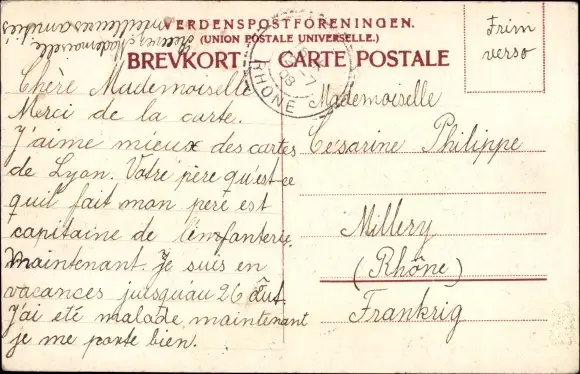 VERDENSPOSTFORENINGEN.
(UNION POSTALE UNIVERSELLE.)
BREVKORT. CARTE POSTALE
Frim
verso
RHONE
08
Recevez Mademoiselle
meilleures amitiés
Chère Mademoiselle
Merci de la carte.
J'aime mieux des cartes
de Lyon. Votre père qu'est-ce
quil fait mon père est
capitaine de l'infanterie.
Maintenant. Je suis en
vacances jusqu'au 26 Out.
J'ai été malade, maintenant
je me porte bien.
Mademoiselle
Césarine Philippe
Millery
(Rhône)
Frankrig